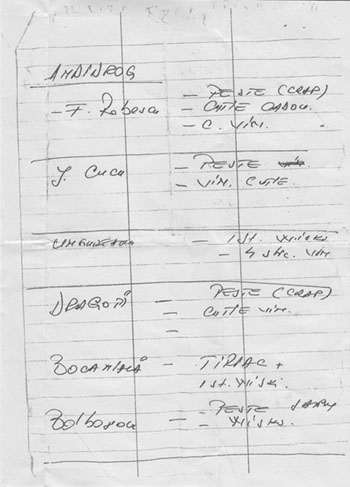 ANDIDROG
- F. Robescu - PESTE (CRAP)
- CUTIE CADOU.
- C. VIN.
J. Cucu - PESTE
- VIN. CUTIE.
- 1 ST. WISKI
- 4 STIC. VIN
DRAGOTĂ - PESTE (CRAP)
- CUTIE VIN.
-
BOCANIALĂ - TIRIAC +
1 ST. WISKI.
Bolboșou - PESTE
- WISKI.